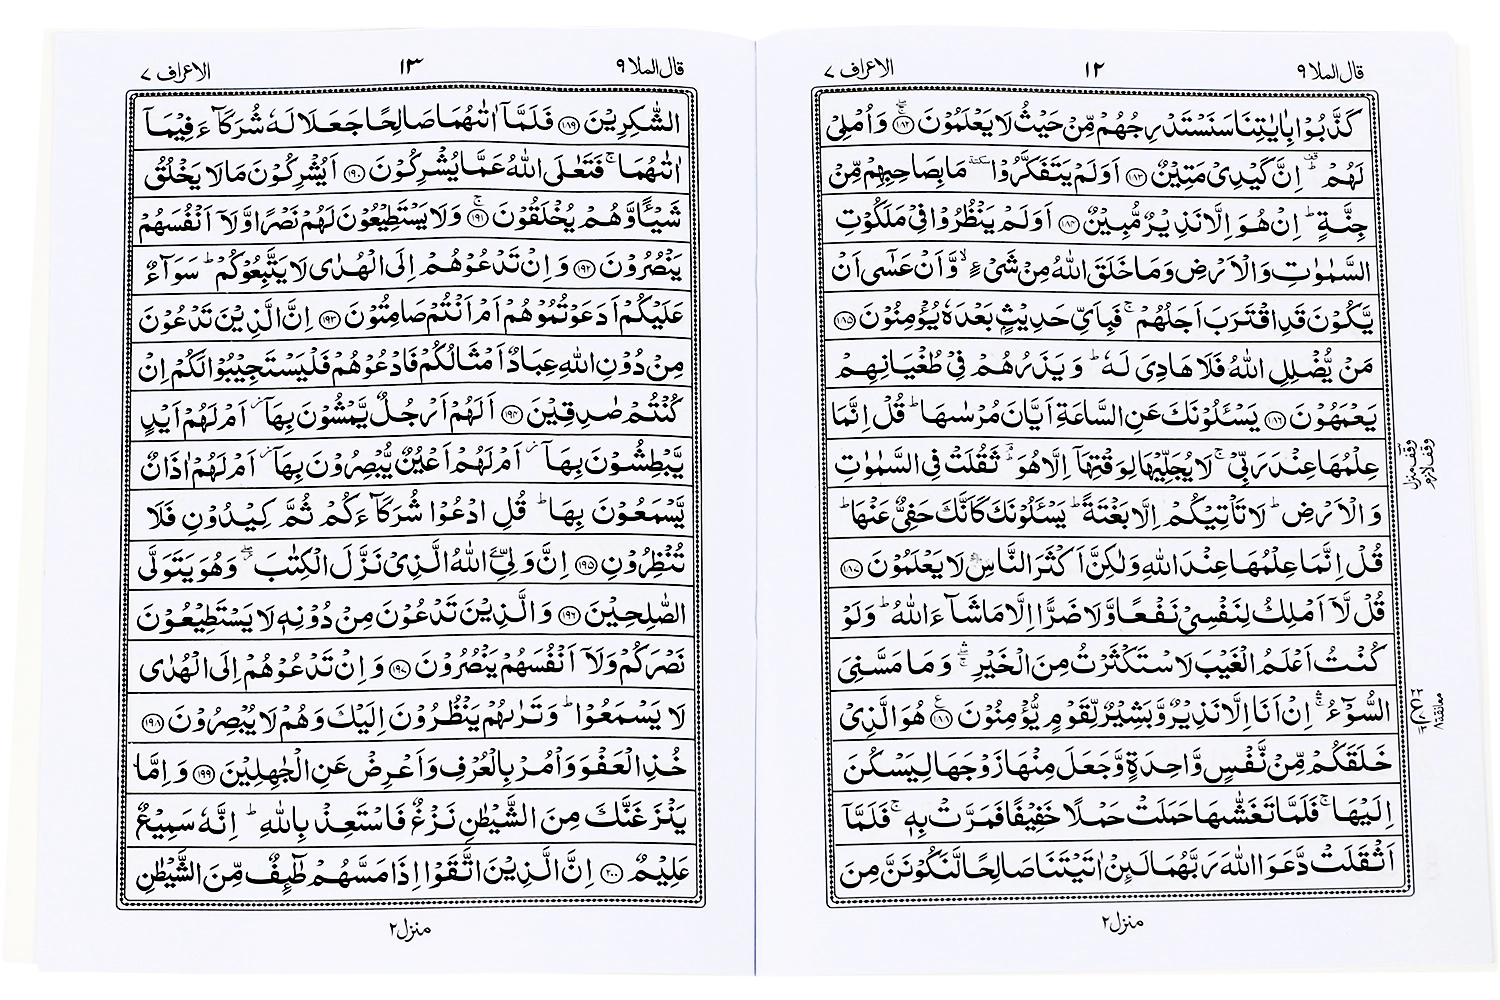 قال الملا ۹
۱۲
الاعراف ۷
كَذَّبُوۡا بِاٰيٰتِنَا سَنَسۡتَدۡرِجُهُمۡ مِّنۡ حَيۡثُ لَا يَعۡلَمُوۡنَ ﴿۱۸۲﴾ۚ وَاُمۡلِىۡ
لَهُمۡ ؕ اِنَّ كَيۡدِىۡ مَتِيۡنٌ ﴿۱۸۳﴾ اَوَلَمۡ يَتَفَكَّرُوۡا ٜ مَا بِصَاحِبِهِمۡ مِّنۡ
جِنَّةٍ ؕ اِنۡ هُوَ اِلَّا نَذِيۡرٌ مُّبِيۡنٌ ﴿۱۸۴﴾ اَوَلَمۡ يَنۡظُرُوۡا فِىۡ مَلَكُوۡتِ
السَّمٰوٰتِ وَالۡاَرۡضِ وَمَا خَلَقَ اللّٰهُ مِنۡ شَىۡءٍ ۙ وَّاَنۡ عَسٰٓى اَنۡ
يَّكُوۡنَ قَدِ اقۡتَرَبَ اَجَلُهُمۡ ۚ فَبِاَىِّ حَدِيۡثٍۢ بَعۡدَهٗ يُؤۡمِنُوۡنَ ﴿۱۸۵﴾
مَنۡ يُّضۡلِلِ اللّٰهُ فَلَا هَادِىَ لَهٗ ؕ وَ يَذَرُهُمۡ فِىۡ طُغۡيَانِهِمۡ
يَعۡمَهُوۡنَ ﴿۱۸۶﴾ يَسۡـَٔلُوۡنَكَ عَنِ السَّاعَةِ اَيَّانَ مُرۡسٰٮهَا ؕ قُلۡ اِنَّمَا
عِلۡمُهَا عِنۡدَ رَبِّىۡ ۚ لَا يُجَلِّيۡهَا لِوَقۡتِهَاۤ اِلَّا هُوَ ؔۘ ثَقُلَتۡ فِى السَّمٰوٰتِ
وَالۡاَرۡضِ ؕ لَا تَاۡتِيۡكُمۡ اِلَّا بَغۡتَةً ؕ يَسۡـَٔلُوۡنَكَ كَاَنَّكَ حَفِىٌّ عَنۡهَا ؕ
قُلۡ اِنَّمَا عِلۡمُهَا عِنۡدَ اللّٰهِ وَلٰكِنَّ اَكۡثَرَ النَّاسِ لَا يَعۡلَمُوۡنَ ﴿۱۸۷﴾
قُلْ لَّاۤ اَمۡلِكُ لِنَفۡسِىۡ نَفۡعًا وَّلَا ضَرًّا اِلَّا مَا شَآءَ اللّٰهُ ؕ وَلَوۡ
كُنۡتُ اَعۡلَمُ الۡغَيۡبَ لَاسۡتَكۡثَرۡتُ مِنَ الۡخَيۡرِ ۛۚ وَمَا مَسَّنِىَ
السُّوۡٓءُ ۛۚ اِنۡ اَنَا اِلَّا نَذِيۡرٌ وَّبَشِيۡرٌ لِّقَوۡمٍ يُّؤۡمِنُوۡنَ ﴿۱۸۸﴾ هُوَ الَّذِىۡ
خَلَقَكُمۡ مِّنۡ نَّفۡسٍ وَّاحِدَةٍ وَّجَعَلَ مِنۡهَا زَوۡجَهَا لِيَسۡكُنَ
اِلَيۡهَا ۚ فَلَمَّا تَغَشّٰٮهَا حَمَلَتۡ حَمۡلًا خَفِيۡفًا فَمَرَّتۡ بِهٖ ۚ فَلَمَّاۤ
اَثۡقَلَتۡ دَّعَوَا اللّٰهَ رَبَّهُمَا لَئِنۡ اٰتَيۡتَنَا صَالِحًا لَّنَكُوۡنَنَّ مِنَ
وقف منزل
وقف لازم
معانقة ۸
منزل ۲
قال الملا ۹
۱۳
الاعراف ۷
الشّٰكِرِيۡنَ ﴿۱۸۹﴾ فَلَمَّاۤ اٰتٰٮهُمَا صَالِحًا جَعَلَا لَهٗ شُرَكَآءَ فِيۡمَاۤ
اٰتٰٮهُمَا ۚ فَتَعٰلَى اللّٰهُ عَمَّا يُشۡرِكُوۡنَ ﴿۱۹۰﴾ اَيُشۡرِكُوۡنَ مَا لَا يَخۡلُقُ
شَيۡـًٔا وَّهُمۡ يُخۡلَقُوۡنَ ﴿۱۹۱﴾ۚ وَلَا يَسۡتَطِيۡعُوۡنَ لَهُمۡ نَصۡرًا وَّلَاۤ اَنۡفُسَهُمۡ
يَنۡصُرُوۡنَ ﴿۱۹۲﴾ وَاِنۡ تَدۡعُوۡهُمۡ اِلَى الۡهُدٰى لَا يَتَّبِعُوۡكُمۡ ؕ سَوَآءٌ
عَلَيۡكُمۡ اَدَعَوۡتُمُوۡهُمۡ اَمۡ اَنۡتُمۡ صَامِتُوۡنَ ﴿۱۹۳﴾ اِنَّ الَّذِيۡنَ تَدۡعُوۡنَ
مِنۡ دُوۡنِ اللّٰهِ عِبَادٌ اَمۡثَالُكُمۡ فَادۡعُوۡهُمۡ فَلۡيَسۡتَجِيۡبُوۡا لَكُمۡ اِنۡ
كُنۡتُمۡ صٰدِقِيۡنَ ﴿۱۹۴﴾ اَلَهُمۡ اَرۡجُلٌ يَّمۡشُوۡنَ بِهَاۤ اَمۡ لَهُمۡ اَيۡدٍ
يَّبۡطِشُوۡنَ بِهَاۤ اَمۡ لَهُمۡ اَعۡيُنٌ يُّبۡصِرُوۡنَ بِهَاۤ اَمۡ لَهُمۡ اٰذَانٌ
يَّسۡمَعُوۡنَ بِهَا ؕ قُلِ ادۡعُوۡا شُرَكَآءَكُمۡ ثُمَّ كِيۡدُوۡنِ فَلَا
تُنۡظِرُوۡنِ ﴿۱۹۵﴾ اِنَّ وَلِىَّۧ اللّٰهُ الَّذِىۡ نَزَّلَ الۡكِتٰبَ ۖ وَهُوَ يَتَوَلَّى
الصّٰلِحِيۡنَ ﴿۱۹۶﴾ وَالَّذِيۡنَ تَدۡعُوۡنَ مِنۡ دُوۡنِهٖ لَا يَسۡتَطِيۡعُوۡنَ
نَصۡرَكُمۡ وَلَاۤ اَنۡفُسَهُمۡ يَنۡصُرُوۡنَ ﴿۱۹۷﴾ وَاِنۡ تَدۡعُوۡهُمۡ اِلَى الۡهُدٰى
لَا يَسۡمَعُوۡا ؕ وَتَرٰٮهُمۡ يَنۡظُرُوۡنَ اِلَيۡكَ وَهُمۡ لَا يُبۡصِرُوۡنَ ﴿۱۹۸﴾
خُذِ الۡعَفۡوَ وَاۡمُرۡ بِالۡعُرۡفِ وَاَعۡرِضۡ عَنِ الۡجٰهِلِيۡنَ ﴿۱۹۹﴾ وَاِمَّا
يَنۡزَغَنَّكَ مِنَ الشَّيۡطٰنِ نَزۡغٌ فَاسۡتَعِذۡ بِاللّٰهِ ؕ اِنَّهٗ سَمِيۡعٌ
عَلِيۡمٌ ﴿۲۰۰﴾ اِنَّ الَّذِيۡنَ اتَّقَوۡا اِذَا مَسَّهُمۡ طٰۤٮِٕفٌ مِّنَ الشَّيۡطٰنِ
منزل ۲